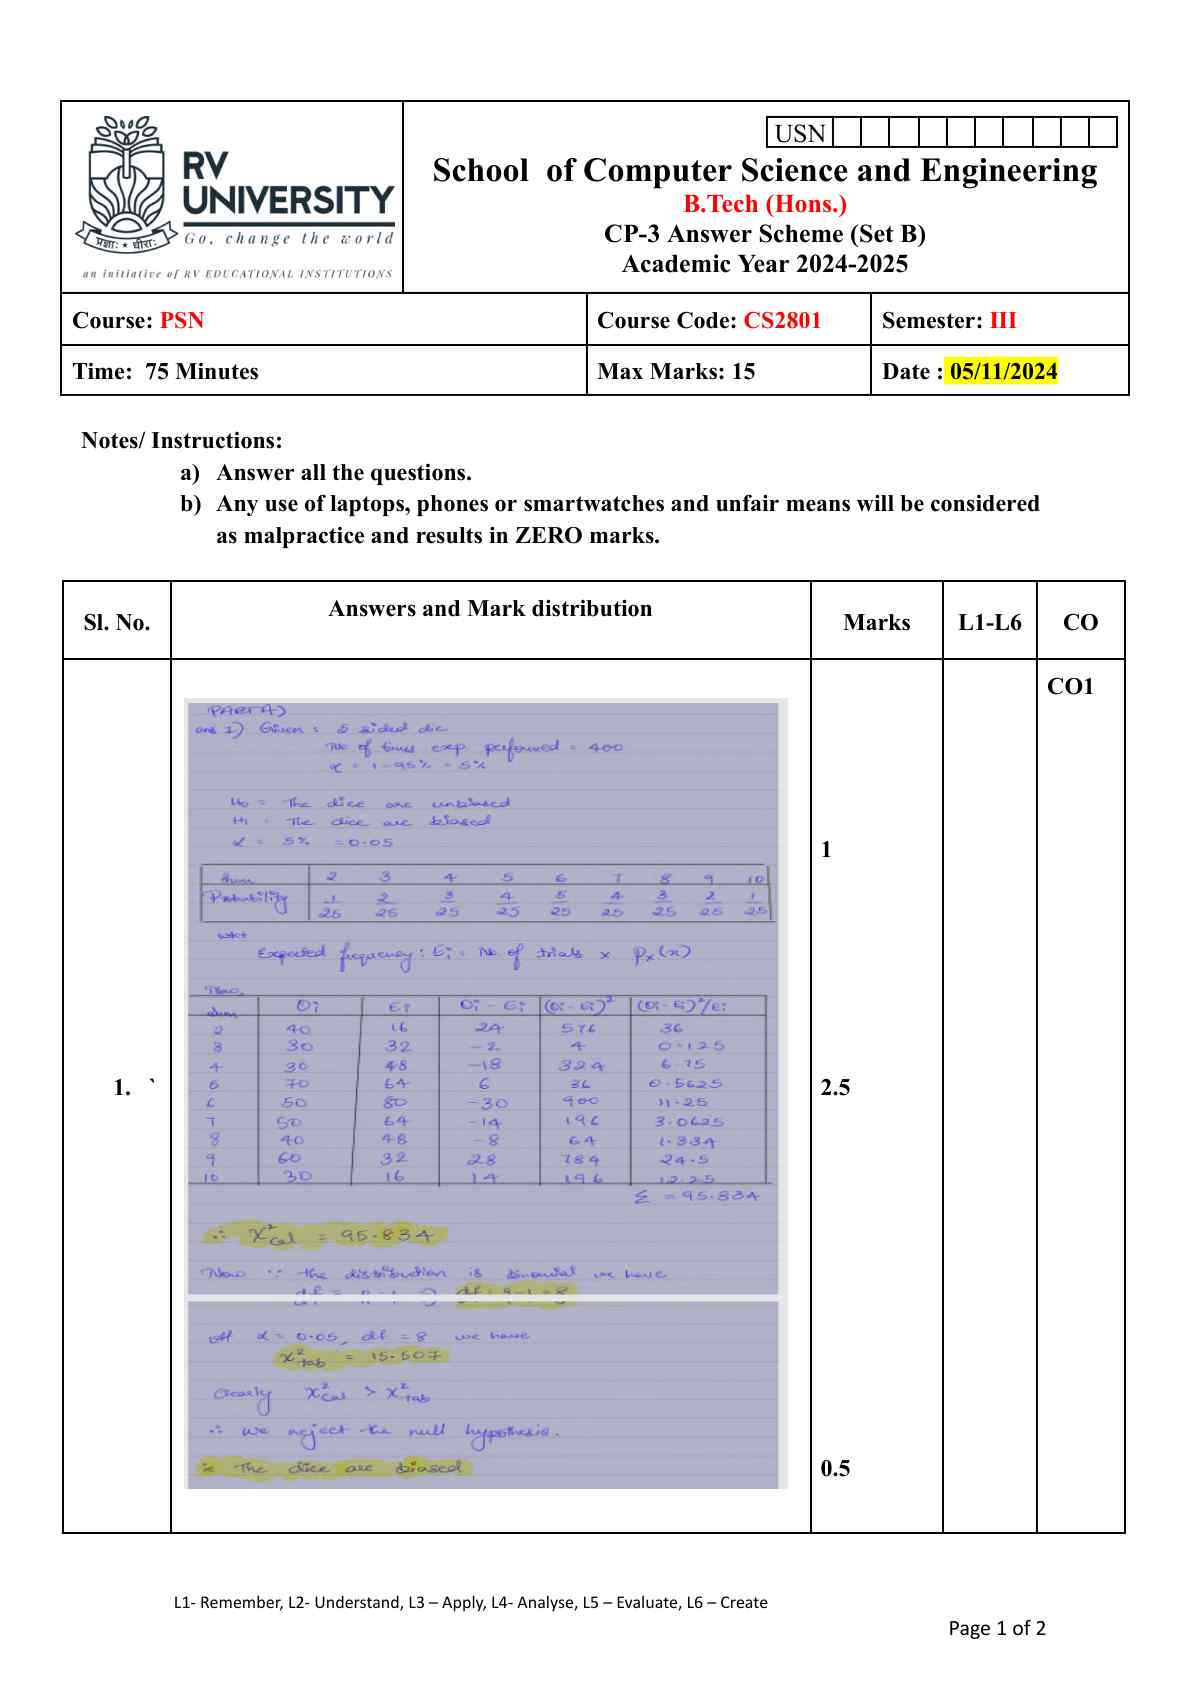 USN
School of Computer Science and Engineering
B.Tech (Hons.)
CP-3 Answer Scheme (Set B)
Academic Year 2024-2025
RV
UNIVERSITY
Go, change the world
an initiative of RV EDUCATIONAL INSTITUTIONS
Course: PSN Course Code: CS2801 Semester: III
Time: 75 Minutes Max Marks: 15 Date : 05/11/2024
Notes/ Instructions:
a) Answer all the questions.
b) Any use of laptops, phones or smartwatches and unfair means will be considered
as malpractice and results in ZERO marks.
Sl. No. Answers and Mark distribution Marks L1-L6 CO
CO1
PART A)
ans 1) Given : 5 sided die
No of times exp performed = 400
α = 1-95% = 5%
H₀ = The dice are unbiased
H₁ = The dice are biased
α = 5% = 0.05
1
2 3 4 5 6 7 8 9 10
Probability 1/25 2/25 3/25 4/25 5/25 4/25 3/25 2/25 1/25
WKT
Expected frequency : Ei = No. of trials × Px(x)
Now,
Oi Ei Oi - Ei (Oi - Ei)² (Oi - Ei)²/Ei
2 40 16 24 576 36
3 30 32 -2 4 0.125
4 30 48 -18 324 6.75
5 70 64 6 36 0.5625
6 50 80 -30 900 11.25
7 50 64 -14 196 3.0625
8 40 48 -8 64 1.334
9 60 32 28 784 24.5
10 30 16 14 196 12.25
Σ = 95.834
1. ` 2.5
∴ χ²cal = 95.834
Now ∵ the distribution is binomial we have
df = n-1 ⇒ df = 9-1 = 8
at α = 0.05, df = 8 we have
χ²tab = 15.507
Clearly χ²cal > χ²tab
∴ we reject the null hypothesis.
∴ The dice are biased
0.5
L1- Remember, L2- Understand, L3 – Apply, L4- Analyse, L5 – Evaluate, L6 – Create
Page 1 of 2